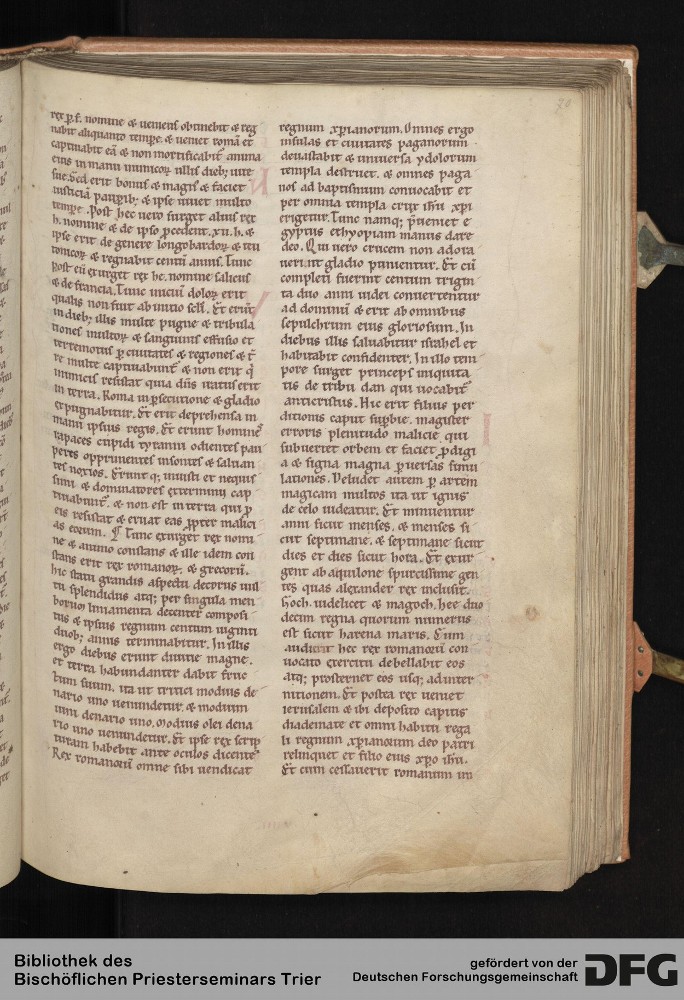 rex p. f. nomine & uemens obtinebit & reg
nabit aliquanto tempe. & ueniet romā et
captiuabit eā & non mortificabit anima
eius in manu inimicoꝝ illis dieb; uite
sue. Sed erit bonus & magnꝰ & faciet
iusticiā pauꝑib; & ipse uiuet multo
tempe. Post hec uero surget alius rex
.h. nomine & de ipso p̄cedent .xii. h. &
ipse erit de genere longobardoꝝ & teu
tonicoꝝ & regnabit centū annis. Tunc
post eū exurget rex be. nomine salicus
& de francia. Tunc iniciū doloꝝ erit
qualis non fuit ab initio sc̄li. Et erūt
in dieb; illis multe pugne & tribula
tiones multoꝝ & sanguinis effusio et
terremotus ꝑ ciuitates & regiones & t̄
re multe captiuabunt̄ & non erit q̇
inimicis resistat quia dn̄s iratus erit
in terra. Roma in ꝑsecutione & gladio
expugnabitur. Et erit deprehensa in
manu ipsius regis. Et erunt homines
rapaces cupidi tyranni odientes pau
peres opprimentes insontes & saluan
tes noxios. Erunt q; iniusti et nequis
simi & dominatores exterminii cap
tiuabunt̄. & non est in terra qui ꝑ
eis resistat & eruat eas ꝓpter malici
as eorum. ¶ Tunc exurget rex nomi
ne & animo constans & ille idem con
stans erit rex romanoꝝ. & grecorū.
hic statu grandis aspectu decorus uul
tu splendidus atq; per singula men
broꝝ liniamenta decenter composi
tus & ipsius regnum centum uiginti
duob; annis terminabitur. In illis
ergo diebus erunt diuitie magne.
et terra habundanter dabit fruc
tum suum. ita ut tritici modius de
nario uno uenundetur. & modium
uini denario uno. Modius olei dena
rio uno uenundetur. Et ipse rex scrip
turam habebit ante oculos dicentē
Rex romanorū omne sibi uendicat
regnum xp̄ianorum. Omnes ergo
insulas et ciuitates paganorum
deuastabit & uniuersa ydolorum
templa destruet. & omnes paga
nos ad baptismum conuocabit et
per omnia templa crux ih̄u xp̄i
erigetur. Tunc namq; p̄ueniet e
gyptus ethyopiam manus dare
deo. Qui uero crucem non adora
uerint gladio punientur. Et cū
completi fuerint centum trigin
ta duo anni iudei conuertentur
ad dominū & erit ab omnibus
sepulchrum eius gloriosum. In
diebus illis saluabitur israhel et
habitabit confidenter. In illo tem
pore surget princeps iniquita
tis de tribu dan qui uocabit̄
anticristus. Hic erit filius per
ditionis caput suꝑbie. magister
erroris plenitudo malicie qui
subuertet orbem et faciet ꝓdigi
a & signa magna ꝑuersas simu
lationes. Deludet autem ꝑ artem
magicam multos ita ut ignis
de celo uideatur. Et minuentur
anni sicut menses. & menses si
cut septimane. & septimane sicut
dies et dies sicut hora. Et exur
gent ab aquilone spurcissime gen
tes quas alexander rex inclusit.
Goch. uidelicet & magoch. hec duo
decim regna quorum numerus
est sicut harena maris. Cum
audierit hec rex romanorū con
uocato exercitu debellabit eos
atq; prosternet eos usq; ad inter
nitionem. Et postea rex ueniet
ierusalem & ibi deposito capitis
diademate et omni habitu rega
li regnum xp̄ianorum deo patri
relinquet et filio eius xp̄o ih̄u.
Et cum cessauerit romanum im
Bibliothek des
Bischöflichen Priesterseminars Trier
gefördert von der
Deutschen Forschungsgemeinschaft
DFG